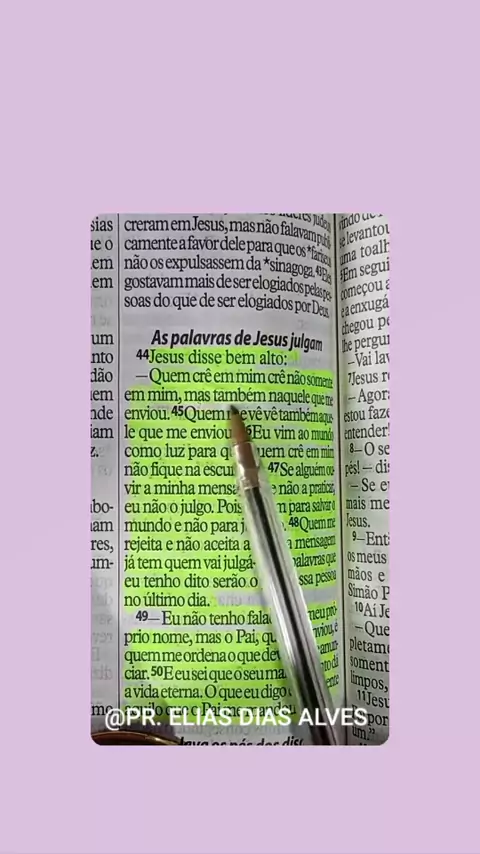 creram em Jesus, mas não falavam publi
camente a favor dele para que os *fariseus
não os expulsassem da *sinagoga. 43Eles
gostavam mais de ser elogiados pelas pes-
soas do que de ser elogiados por Deus.
As palavras de Jesus julgam
44Jesus disse bem alto:
—Quem crê em mim crê não somente
em mim, mas também naquele que me
enviou. 45Quem me vê vê também aque-
le que me enviou. 46Eu vim ao mundo
como luz para que quem crê em mim
não fique na escuri 47Se alguém ou-
vir a minha mensa e não a praticar,
eu não o julgo. Pois m para salvar o
mundo e não para j 48Quem me
rejeita e não aceita a mensagem
já tem quem vai julgá- palavras que
eu tenho dito serão o ssa pessoa
no último dia.
49—Eu não tenho fala meu pró-
prio nome, mas o Pai, qu enviou, é
quem me ordena o que de anun-
ciar. 50E eu sei que o seu ma
a vida eterna. O que eu digo
aquilo que o Pai me mandou
lava os pés dos disc
sias
em
em
um
nto
dão
em
nde
iam
z.
abo-
nam
res,
um-
imo
se levantou
uma toalh
Em segui
começou a
e a enxugá
chegou pe
lhe pergun
—Vai lav
7Jesus re
—Agora
estou faze
entender!
8—O se
pés!—dis
—Se e
mais me
Jesus.
9—Entã
os meus
mãos e
Simão P
10Aí Je
—Que
pletame
soment
limpos,
11Jesu
por
um."
@PR. ELIAS DIAS ALVES